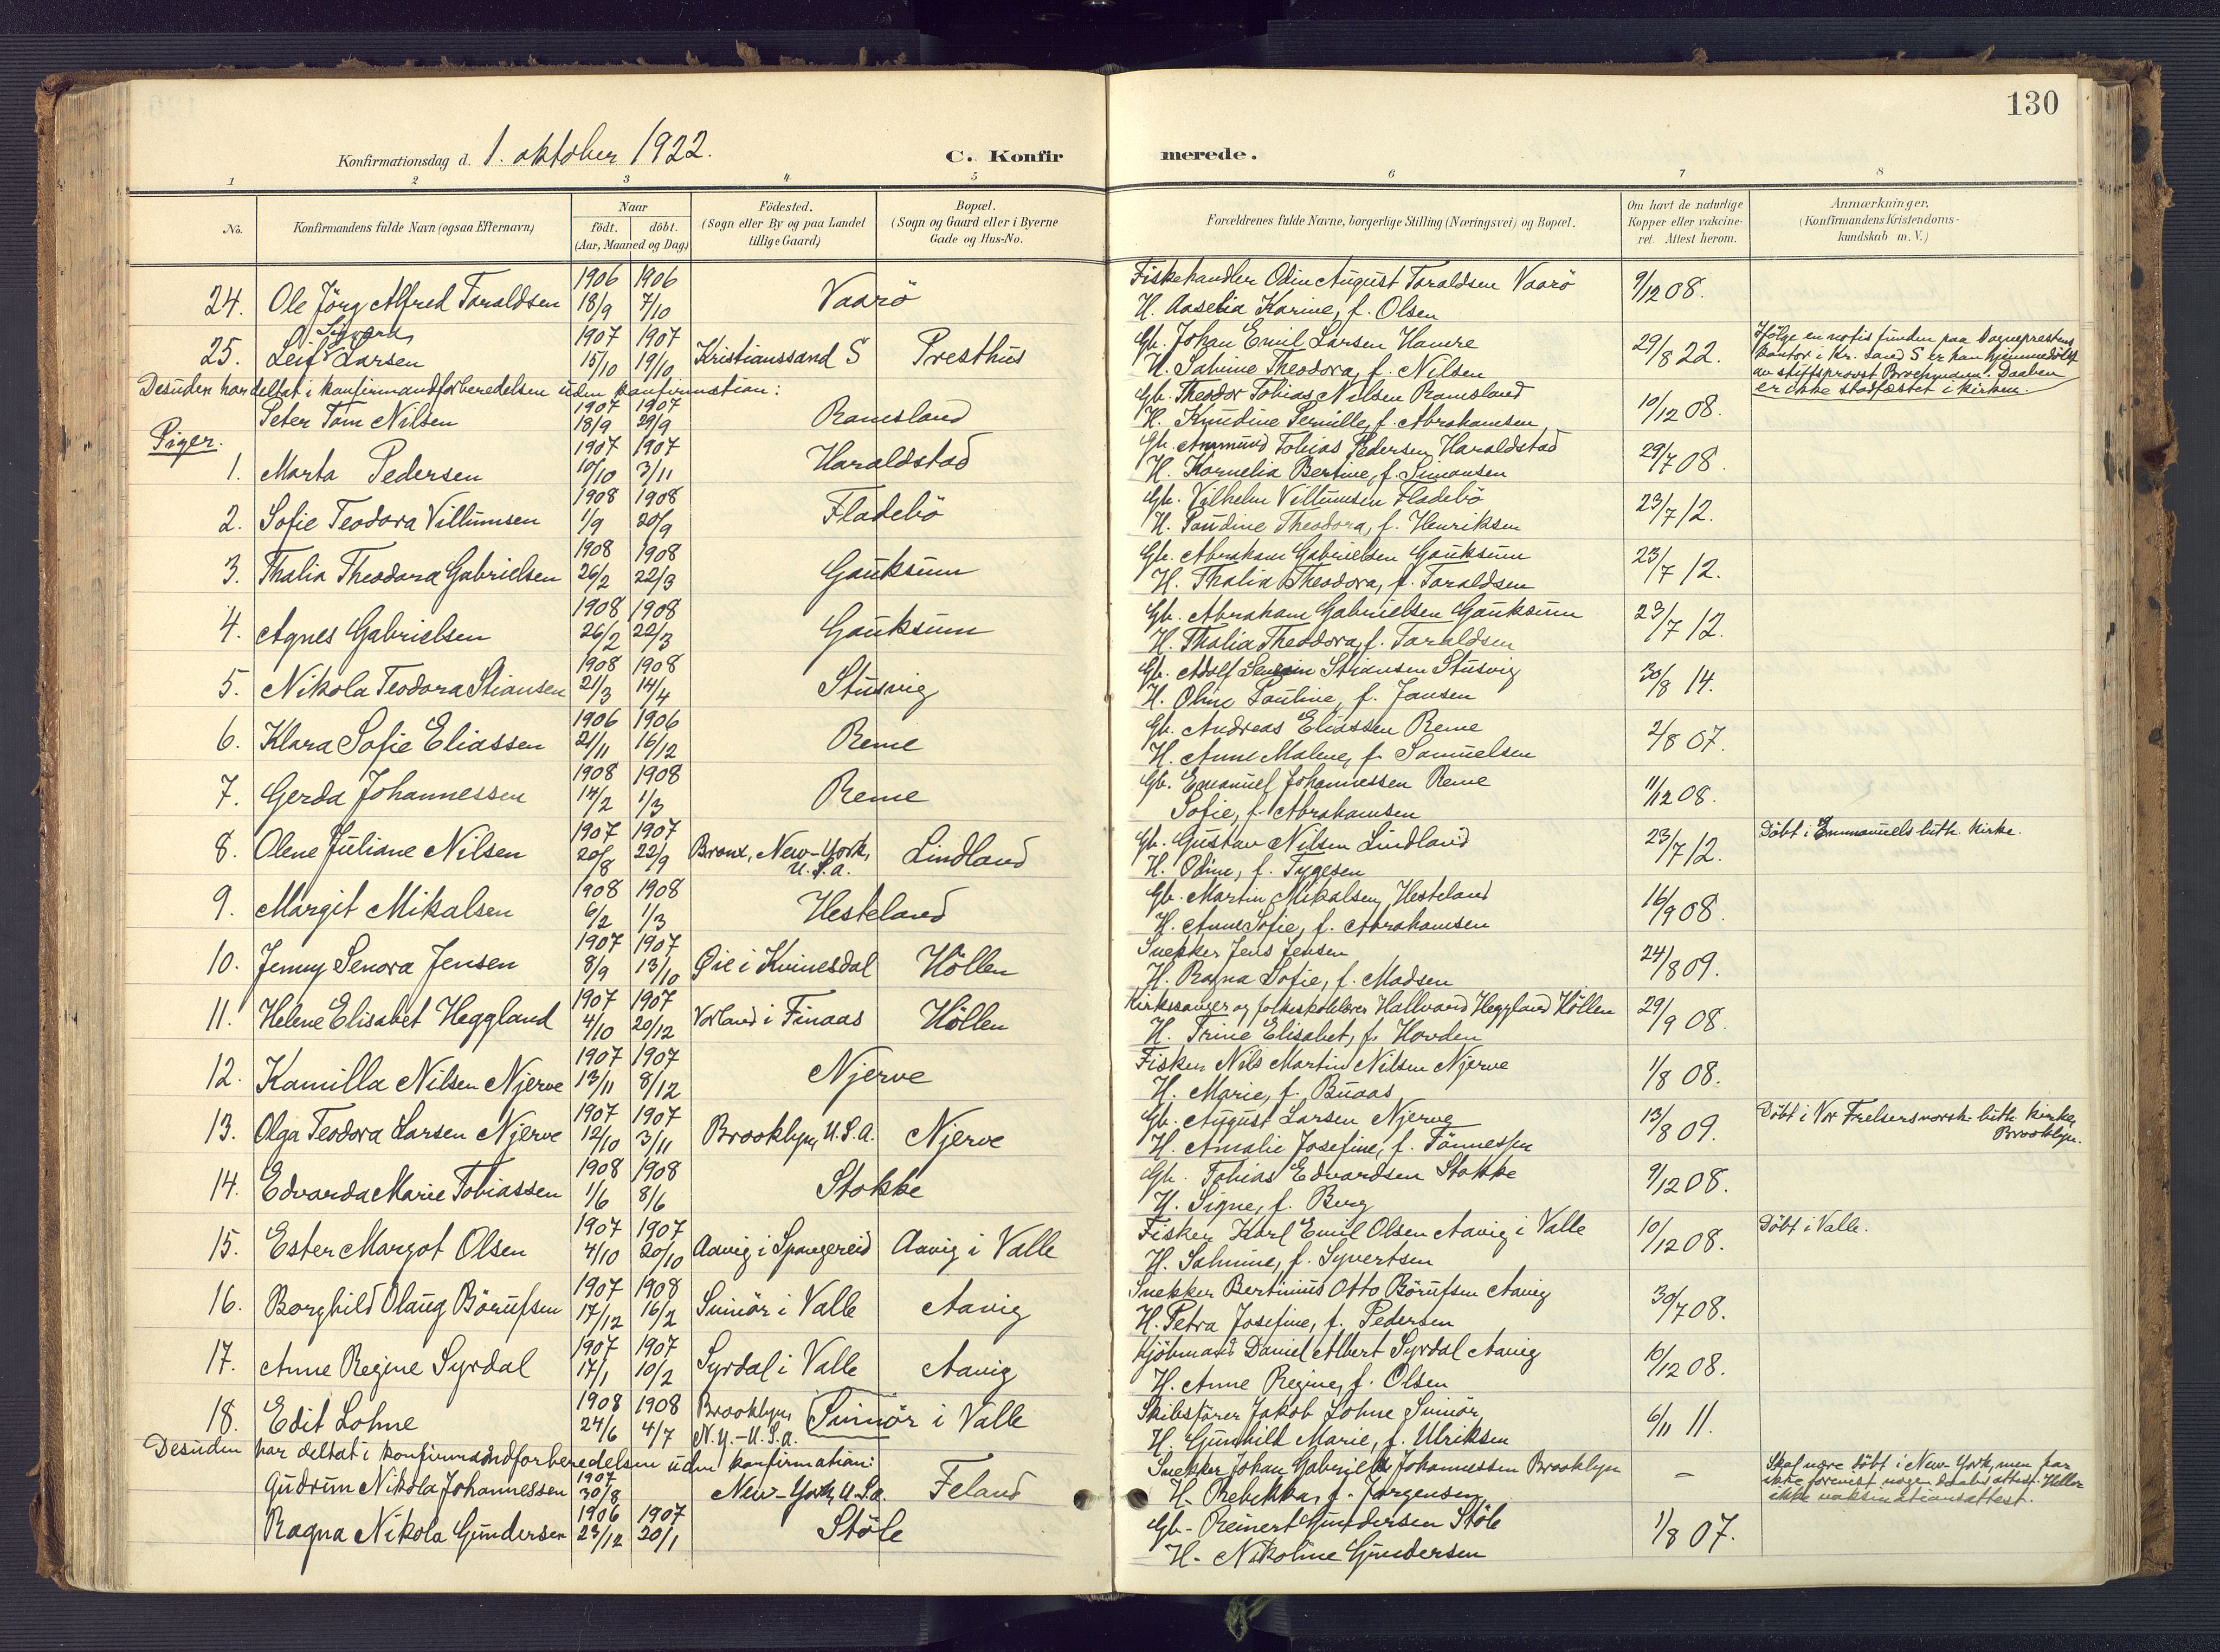 130
Konfirmationsdag d. 1. oktober 1922.
C. Konfirmerede.
1 2 3 4 5 6 7 8
No. Konfirmandens fulde Navn (ogsaa Efternavn) Naar födt. döbt. (Aar, Maaned og Dag) Födested. (Sogn eller By og paa Landet tillige Gaard) Bopæl. (Sogn og Gaard eller i Byerne Gade og Hus-No. Forældrenes fulde Navne, borgerlige Stilling (Næringsvei) og Bopæl. Om havt de naturlige Kopper eller vakcineret. Attest herom. Anmærkninger. (Konfirmandens Kristendomskundskab m. V.)
24. Ole Jörg Alfred Taraldsen 1906 18/9 1906 7/10 Vaarö Fiskehandler Odin August Taraldsen Vaarö 9/12 08.
H. Aaselia Karine, f. Olsen
25. Leif Sigvard Larsen 1907 15/10 1907 19/10 Kristianssand S Presthus Gb. Johan Emil Larsen Hamre 29/8 22. Ifölge en notis funden paa Dagnsprestens
H. Sabine Theodora, f. Nilsen kontor i Kr. sand S er han hjemmedöbt
av stiftsprovst Brochmann. Daaben
er ikke stadfæstet i kirken.
Desuden har deltat i konfirmandforberedelsen uden konfirmation:
Peter Tom Nilsen 1907 18/9 1907 29/9 Ramsland Gb. Theodor Tobias Nilsen Ramsland 10/12 08.
H. Knudine Pernille, f. Abrahamsen
Piger.
1. Marta Pedersen 1907 10/10 1907 3/11 Haraldstad Gb. Ammund Tobias Pedersen Haraldstad 29/7 08.
H. Kornelia Bertine, f. Simonsen
2. Sofie Teodora Villumsen 1908 1/9 1908 20/9 Fladebö Gb. Vilhelm Villumsen Fladebö 23/7 12.
H. Paudine Theodora, f. Henriksen
3. Thalia Theodora Gabrielsen 1908 26/2 1908 22/3 Gauksum Gb. Abraham Gabrielsen Gauksum 23/7 12.
H. Thalia Theodora, f. Taraldsen
4. Agnes Gabrielsen 1908 26/2 1908 22/3 Gauksum Gb. Abraham Gabrielsen Gauksum 23/7 12.
H. Thalia Theodora, f. Taraldsen
5. Nikola Teodora Stiansen 1908 21/3 1908 14/4 Stusvig Gb. Adolf Stiansen Stusvig 30/8 14.
H. Oline Pauline, f. Jansen
6. Klara Sofie Eliassen 1906 21/11 1906 16/12 Reme Gb. Andreas Eliassen Reme 2/8 07.
H. Anne Malene, f. Samuelsen
7. Gerda Johannessen 1908 14/2 1908 1/3 Reme Gb. Emanuel Johannessen Reme 11/12 08.
Sofie, f. Abrahamsen
8. Olene Juliane Nilsen 1907 20/8 1907 22/9 Bronx, New-York, U.S.a. Lindland Gb. Gustav Nilsen Lindland 23/7 12. Döbt i Emmanuels luth. kirke.
H. Odine, f. Tygesen
9. Margit Mikalsen 1908 6/2 1908 1/3 Hesteland Gb. Martin Mikalsen, Hesteland 16/9 08.
H. Anne Sofie, f. Abrahamsen
10. Jenny Senora Jensen 1907 8/9 1907 13/10 Øie i Kvinesdal Höllen Snekker Jens Jensen 24/8 09.
H. Ragna Sofie, f. Madsen
11. Helene Elisabet Heggland 1907 4/10 1907 20/12 Vorland i Finaas Höllen Kirkesanger og folkeskolelærer Hallvard Heggland Höllen 29/9 08.
H. Trine Elisabet, f. Hovden
12. Kamilla Nilsen Njerve 1907 13/11 1907 8/12 Njerve Fisker Nils Martin Nilsen Njerve 1/8 08.
H. Marie, f. Buaas
13. Olga Teodora Larsen Njerve 1907 12/10 1907 3/11 Brooklyn, U.S.a. Njerve Gb. August Larsen Njerve 13/8 09. Döbt i Vor Frelsers norsk-luth. kirke,
H. Amalie Josefine, f. Tönnessen Brooklyn.
14. Edvarda Marie Tobiassen 1908 1/6 1908 8/6 Stokke Gb. Tobias Edvardsen Stokke 9/12 08.
H. Signe, f. Berg
15. Ester Margot Olsen 1907 4/10 1907 20/10 Aavig i Spangereid Aavig i Valle Fisker Karl Emil Olsen Aavig i Valle 10/12 08. Döbt i Valle.
H. Salmine, f. Syvertsen
16. Borghild Olaug Börufsen 1907 17/12 1908 16/2 Svinör i Valle Aavig Snekker Bertinius Otto Börufsen Aavig 30/7 08.
H. Petra Josefine, f. Pedersen
17. Anne Regine Syrdal 1907 17/1 1907 10/2 Syrdal i Valle Aavig Kjöbmand Daniel Albert Syrdal Aavig 10/12 08.
H. Anne Regine, f. Olsen
18. Edit Lohne 1908 24/6 1908 4/7 Brooklyn, N.Y.-U.S.a. Svinör i Valle Skibsförer Jakob Lohne Svinör, 6/11 11.
H. Gunhild Marie, f. Ulriksen
Desuden har deltat i konfirmandforberedelsen uden konfirmation:
Gudrun Nikola Johannessen 1907 30/8 New-York, U.S.a. Feland Snekker Johan Gabriel Johannessen Brooklyn – Skal være döbt i New-York, men har
H. Rebekka, f. Jörgensen ikke forevist nogen daabsattest. Heller
ikke vaksinationsattest.
Ragna Nikola Gundersen 1906 23/12 1907 20/1 Stöle Gb. Reinert Gundersen Stöle 1/8 07.
H. Nikoline Gundersen